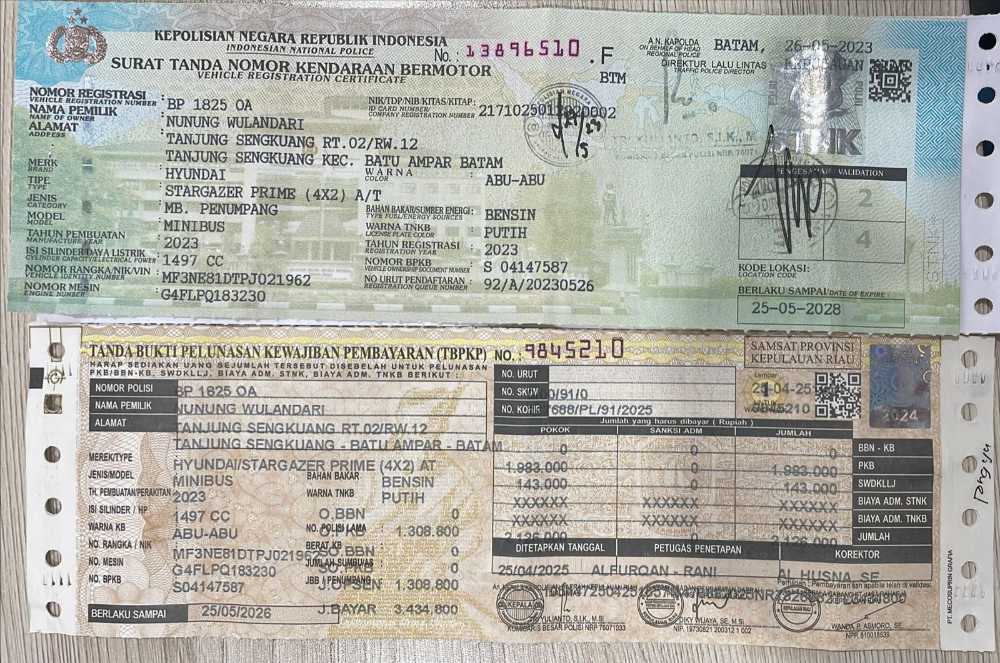 KEPOLISIAN NEGARA REPUBLIK INDONESIA
INDONESIAN NATIONAL POLICE
No.: 13896510 .F
SURAT TANDA NOMOR KENDARAAN BERMOTOR
VEHICLE REGISTRATION CERTIFICATE
BTM
A.N. KAPOLDA
ON BEHALF OF HEAD
REGIONAL POLICE
BATAM, 26-05-2023
DIREKTUR LALU LINTAS
TRAFFIC POLICE DIRECTOR
NOMOR REGISTRASI : BP 1825 OA
VEHICLE REGISTRATION NUMBER
NIK/TDP/NIB/KITAS/KITAP :
ID CARD NUMBER/
COMPANY REGISTRATION NUMBER
NAMA PEMILIK : NUNUNG WULANDARI
NAME OF OWNER
ALAMAT : TANJUNG SENGKUANG RT.02/RW.12
ADDRESS
TANJUNG SENGKUANG KEC. BATU AMPAR BATAM
MERK : HYUNDAI
BRAND
WARNA : ABU-ABU
COLOR
TIPE : STARGAZER PRIME (4X2) A/T
TYPE
JENIS : MB. PENUMPANG
CATEGORY
BAHAN BAKAR/SUMBER ENERGI : BENSIN
TYPE FUEL/ENERGY SOURCES
MODEL : MINIBUS
MODEL
WARNA TNKB : PUTIH
LICENSE PLATE COLOR
TAHUN PEMBUATAN : 2023
MANUFACTURE YEAR
TAHUN REGISTRASI : 2023
REGISTRATION YEAR
ISI SILINDER/DAYA LISTRIK : 1497 CC
CYLINDER CAPACITY/ELECTRICAL POWER
NOMOR BPKB : S 04147587
VEHICLE OWNERSHIP DOCUMENT NUMBER
NOMOR RANGKA/NIK/VIN : MF3NE81DTPJ021962
VEHICLE IDENTITY NUMBER
NO URUT PENDAFTARAN : 92/A/20230526
REGISTRATION QUEUE NUMBER
NOMOR MESIN : G4FLPQ183230
ENGINE NUMBER
PENGESAHAN/VALIDATION
2
4
KODE LOKASI:
LOCATION CODE
BERLAKU SAMPAI/DATE OF EXPIRE :
25-05-2028
TANDA BUKTI PELUNASAN KEWAJIBAN PEMBAYARAN (TBPKP) NO.: 9845210
HARAP SEDIAKAN UANG SEJUMLAH TERSEBUT DISEBELAH UNTUK PELUNASAN
PKB/BBN-KB, SWDKLLJ, BIAYA ADM. STNK, BIAYA ADM. TNKB BERIKUT :
SAMSAT PROVINSI
KEPULAUAN RIAU
2024
NOMOR POLISI BP 1825 OA
NAMA PEMILIK NUNUNG WULANDARI
ALAMAT TANJUNG SENGKUANG RT.02/RW.12
TANJUNG SENGKUANG - BATU AMPAR - BATAM
MEREK/TYPE HYUNDAI/STARGAZER PRIME (4X2) AT
JENIS/MODEL MINIBUS BAHAN BAKAR BENSIN
TH. PEMBUATAN/PERAKITAN 2023 WARNA TNKB PUTIH
ISI SILINDER / HP 1497 CC O.BBN 0
WARNA KB ABU-ABU NO. POLISI LAMA : 1.308.800
NO. RANGKA / NIK MF3NE81DTPJ021962 BERAT KB 0
NO. MESIN G4FLPQ183230 0
NO. BPKB S04147587 JBB / PENUMPANG 1.308.800
BERLAKU SAMPAI 25/05/2026 J.BAYAR 3.434.800
NO. URUT
NO. SKUM
NO. KOHIR 7688/PL/91/2025
Jumlah yang harus dibayar ( Rupiah )
POKOK SANKSI ADM JUMLAH
0 0 0 BBN - KB
1.983.000 0 1.983.000 PKB
143.000 0 143.000 SWDKLLJ
XXXXXX XXXXXX XXXXXX BIAYA ADM. STNK
XXXXXX XXXXXX XXXXXX BIAYA ADM. TNKB
2.126.000 0 2.126.000 JUMLAH
DITETAPKAN TANGGAL PETUGAS PENETAPAN KOREKTOR
25/04/2025 ALFURQAN - RANI AL HUSNA, SE
KOMBES BESAR POLISI NRP 76071033
NIP. 19730821 200312 1 002
PT. MEDOSUPRIN GRAFIA